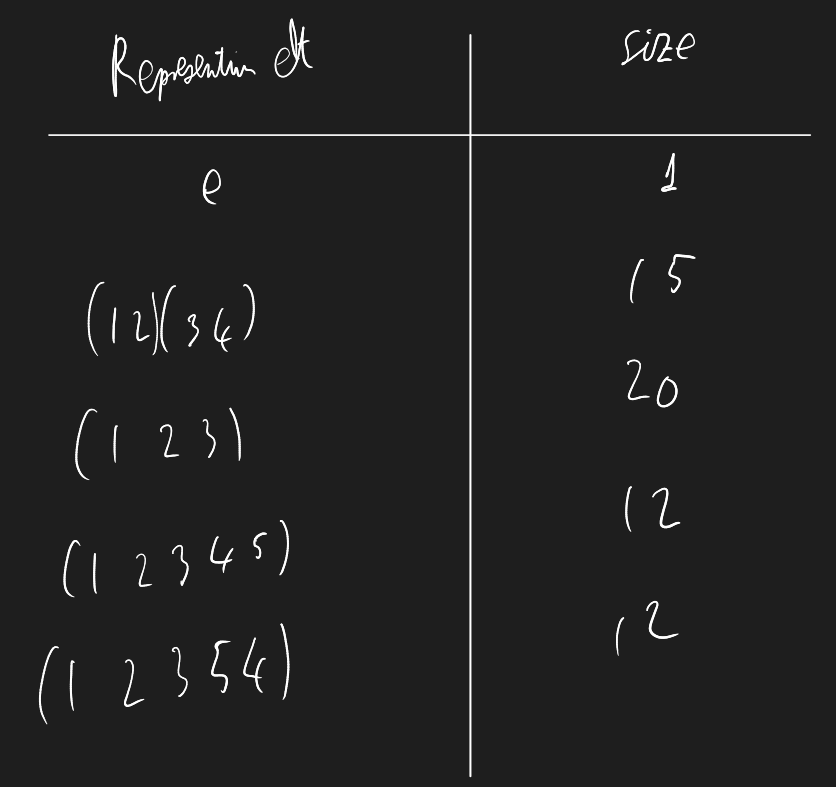 Representin elt size
e 1
(1 2)(3 4) 15
(1 2 3) 20
(1 2 3 4 5) 12
(1 2 3 5 4) 12